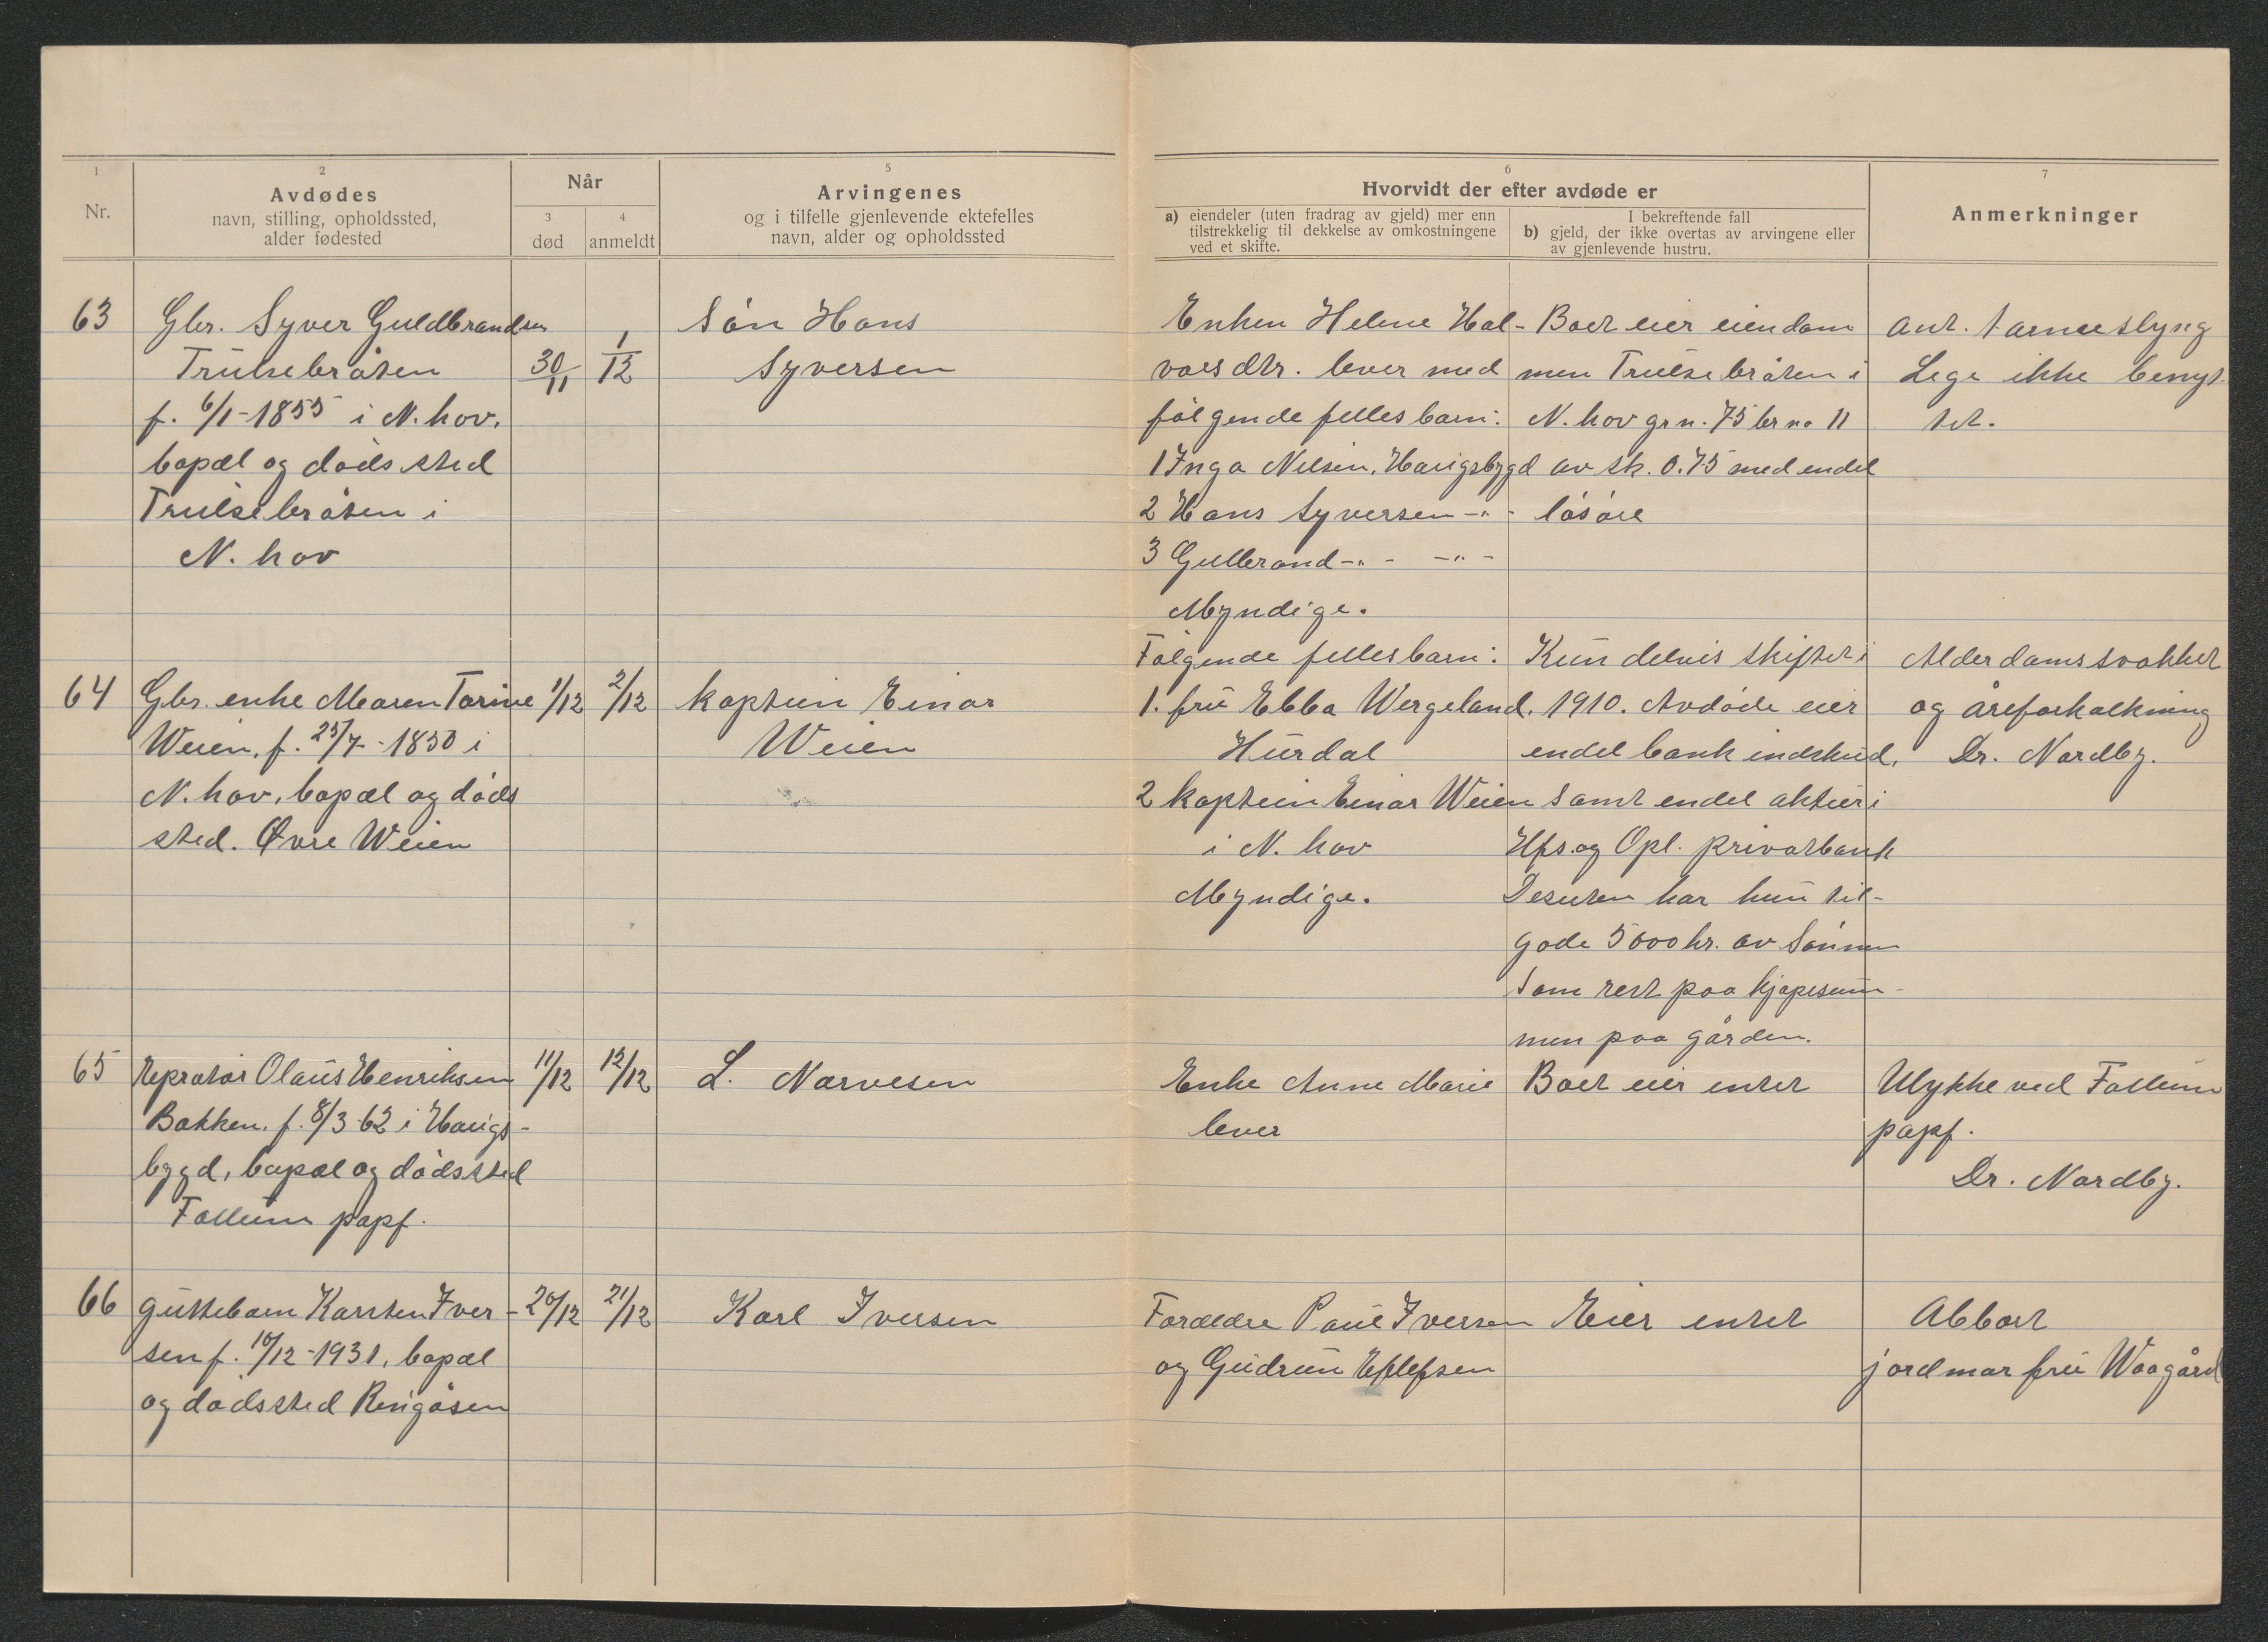 1
Nr.
2
Avdødes
navn, stilling, opholdssted,
alder fødested
Når
3
død
4
anmeldt
5
Arvingenes
og i tilfelle gjenlevende ektefelles
navn, alder og opholdssted
6
Hvorvidt der efter avdøde er
a) eiendeler (uten fradrag av gjeld) mer enn
tilstrekkelig til dekkelse av omkostningene
ved et skifte.
I bekreftende fall
b) gjeld, der ikke overtas av arvingene eller
av gjenlevende hustru.
7
Anmerkninger
63
Gbr. Syver Guldbrandsen
Trulsebråten
f. 6/1-1855 i N. hov.
bopæl og døds sted
Trulsebråten i
N. hov
30/11
1/12
Søn Hans
Syversen
Enken Helene Hal-
vors dtr. lever med
følgende felles barn:
1 Inga Nilsen, Haugsbygd
2 Hans Syversen -"-
3 Gulbrand -"- -"-
Myndige.
Boet eier eiendom
men Trulsebråten i
N. hov grn. 75 br no 11
av sk. 0.75 med endel
løsøre
Ant. tarmeslyng
Lege ikke benyt
tet.
64
Gbr. enke Maren Torine
Weien, f. 25/7-1850 i
N. hov, bopæl og døds
sted. Øvre Weien
1/12
2/12
kaptein Einar
Weien
Følgende felles barn:
1. fru Ebba Wergeland,
Hurdal
2 kaptein Einar Weien
i N. hov
Myndige.
Kun delvis skiftet i
1910. Avdøde eier
endel bank indskud,
samt endel aktier i
Hfs. og Opl. privatbank
Desuten har hun til-
gode 5000 kr. av sønnen
som rest paa kjøpesum-
men paa gården.
Alderdomssvakhet
og åreforkalkning
Dr. Nordby.
65
Repratør Olaus Henriksen
Bakken. f. 8/3-62 i Haugs-
bygd, bopæl og dødssted
Follum papf.
11/12
12/12
L. Narvesen
Enke Anne Marie
lever
Boet eier intet
Ulykke ved Follum
papf.
Dr. Nordby.
66
guttebarn Karsten Iver-
sen f. 10/12-1931, bopæl
og dødssted Ringåsen
20/12
21/12
Karl Iversen
Foreldre Paul Iversen
og Gudrun Eplefsen
Eier intet
Abbort
jordmor fru Waagård